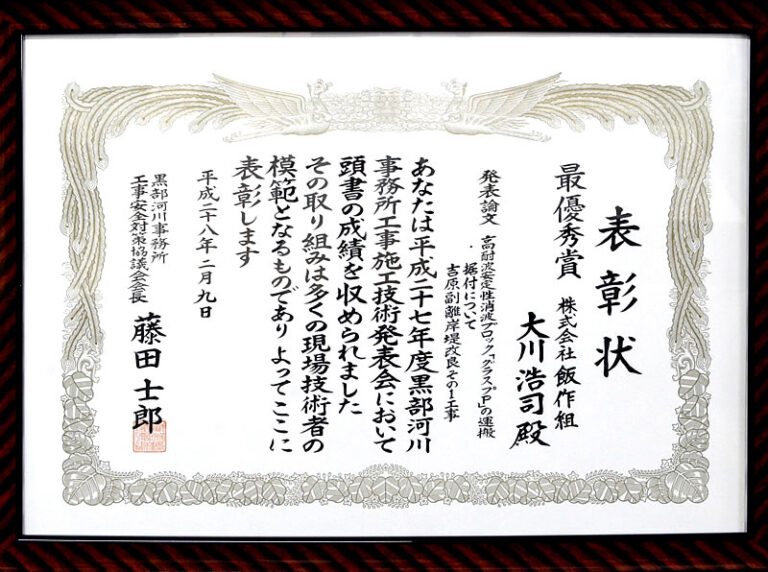 表彰状
最優秀賞
株式会社 飯作組
大川浩司殿
発表論文 高耐波安定性消波ブロック「グラスプP」の運搬
据付について
吉原副離岸堤改良その1工事
あなたは平成二十七年度黒部河川
事務所工事施工技術発表会において
頭書の成績を収められました
その取り組みは多くの現場技術者の
模範となるものであり よってここに
表彰します
平成二十八年二月九日
黒部河川事務所
工事安全対策協議会会長
藤田士郎